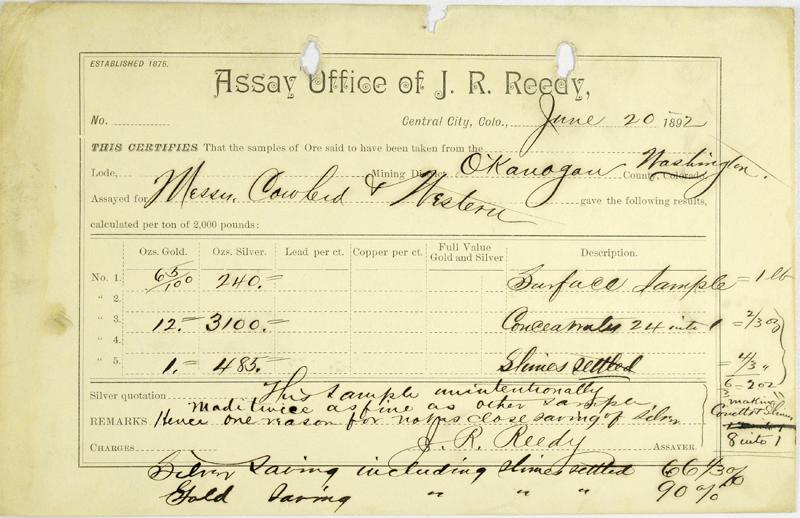 ESTABLISHED 1876.
Assay Office of J. R. Reedy,
No.
Central City, Colo., June 20 1892
THIS CERTIFIES That the samples of Ore said to have been taken from the
Lode, Mining District, Okanogan County, Colorado Washington.
Assayed for Messrs. & Western gave the following results,
calculated per ton of 2,000 pounds:
Ozs. Gold. Ozs. Silver. Lead per ct. Copper per ct. Full Value Gold and Silver Description.
No. 1. 65/100 240.= Surface Sample = 1 lb
" 2.
" 3. 12.= 3100.= Concentrates 24 into 1 = 2/3 oz
" 4.
" 5. 1.= 485.= Slimes settled = 4/3 "
6 = 2oz
making
Slimes
8 into 1
Silver quotation This sample unintentionally
Made twice as fine as other sample,
REMARKS Hence one reason for not as close saving of silver
CHARGES J. R. Reedy ASSAYER.
Silver Saving including slimes settled 66 2/3 %
Gold Saving " " " 90 %